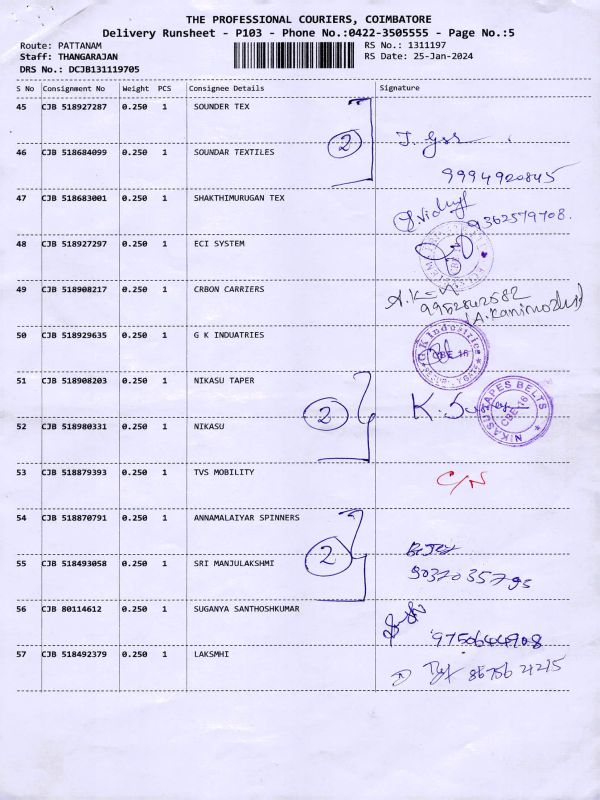 THE PROFESSIONAL COURIERS, COIMBATORE
Delivery Runsheet - P103 - Phone No.:0422-3505555 - Page No.:5
Route: PATTANAM RS No.: 1311197
Staff: THANGARAJAN RS Date: 25-Jan-2024
DRS No.: DCJB131119705
S No Consignment No Weight PCS Consignee Details Signature
45 CJB 518927287 0.250 1 SOUNDER TEX
2
46 CJB 518684099 0.250 1 SOUNDAR TEXTILES
9994920845
47 CJB 518683001 0.250 1 SHAKTHIMURUGAN TEX
9362579708.
48 CJB 518927297 0.250 1 ECI SYSTEM
49 CJB 518908217 0.250 1 CRBON CARRIERS
9952842582
(A.Kanimozhi)
50 CJB 518929635 0.250 1 G K INDUATRIES
G K Industries
CBE-16
51 CJB 518908203 0.250 1 NIKASU TAPER
2 K.
NIKASU TAPES BELTS
CBE-16
52 CJB 518980331 0.250 1 NIKASU
53 CJB 518879393 0.250 1 TVS MOBILITY C/N
54 CJB 518870791 0.250 1 ANNAMALAIYAR SPINNERS
2
55 CJB 518493058 0.250 1 SRI MANJULAKSHMI
9037035795
56 CJB 80114612 0.250 1 SUGANYA SANTHOSHKUMAR
57 CJB 518492379 0.250 1 LAKSMHI